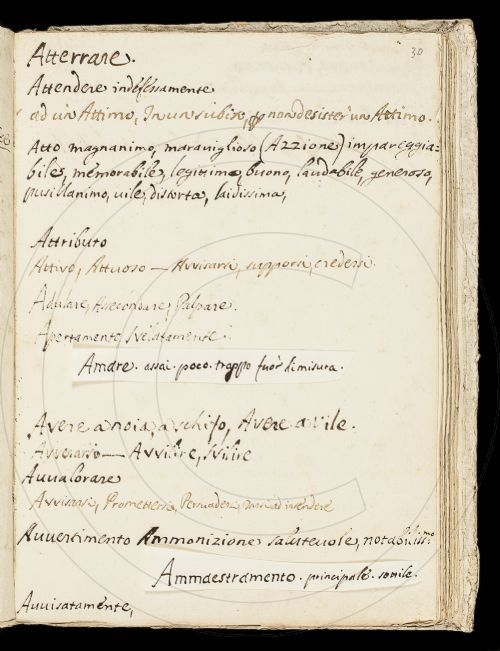 30
Atterrare.
Attendere indefessamente
ad un Attimo, In un subito, non desister un Attimo.
Atto magnanimo, maraviglioso (Azzione) impareggia=
biles, memorabile, legitima, buono, laudabile, generoso,
pusillanimo, vile, distorta, laidissima,
Attributo
Attivo, Attuoso — Avvisarsi, supporsi, credersi
Adulare, Assecondare, Palpare.
Apertamente, svelatamente.
Amare. assai. poco. troppo fuor di misura.
Avere a noia, a schifo, Avere a vile.
Avversario — Avvilire, svilire
Avvalorare
Avvisarsi, Promettersi, Persuader
Avvertimento Ammonizione salutevole, notabiliss.mo
Ammaestramento. principale. sottile.
Avvisatamente,